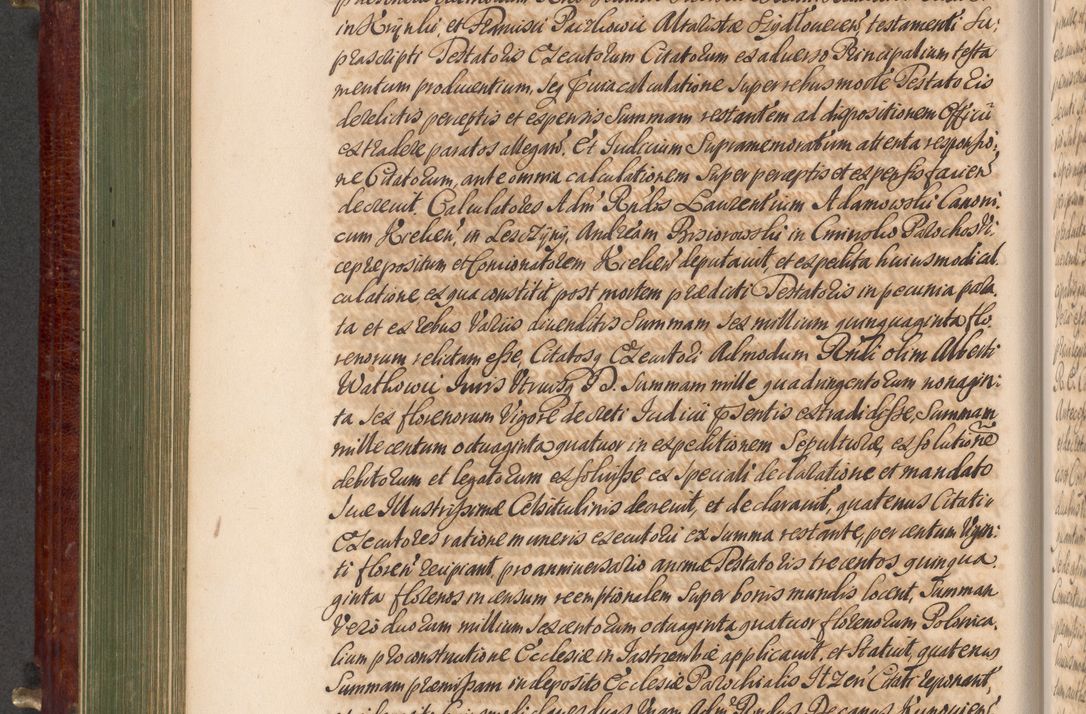 in Kiynlii, et Francisci Pawlowic Altaristæ Szydloviecen testamenti Su:
præscripti Testatoris Executorum Citatorum ex adverso Principalium testa
mentum producentium, seq jura calculatione super rebus modte Testatoris
derelictis perceptis et expensis Summam restantem ad dispositionem Officii
extradere paratos allegan. Et Judicium Supramemoratum attenta responsio:
ne Citatorum, ante omnia calculationem super perceptis et expensis facien
decrevit. Calculatores Adm Rndos Laurentium Adamowski Canoni:
cum Kielien, in Lesczyny, Andream Brsiorowski in Cminsko Parochos Vi:
cepræpositum et Concionatorem Kielien deputavit, et expedita huiusmodi cal
culatione ex qua constitit post mortem prædicti Testatoris in pecunia para
ta et ex rebus variis divenditis Summam sex millium quinquaginta flo:
renorum relictam esse, Citatosq Executori Admodum Rndi olim Alberti
Watkowic Juris Utriusq D. Summam mille quadringentorum nonagin:
ta sex florenorum vigore decreti Judicii psentis extradidisse, Summam
mille centum octuaginta quatuor in expeditionem Sepulturæ, exsolutione
debitorum et legatorum exsoluisse ex speciali declaratione et mandato
Suæ Illustrissimæ Celsitudinis decrevit, et declaravit, quatenus Citati
Executores ratione muneris executorii ex summa restante, per centum vigin:
ti floren recipiant, pro anniversario animæ Testatoris trecentos quinqua
ginta florenos in censum reemptionalem super bonis mundis locent, Summam
vero duorum millium sexcentorum octuaginta quatuor florenorum Polonica
lium pro constructione Ecclesiæ in Jastrzembie applicavit, et statuit, quatenus
Summam præmissam in deposito Ecclesiæ Parochialis Itzen Citati reponant,